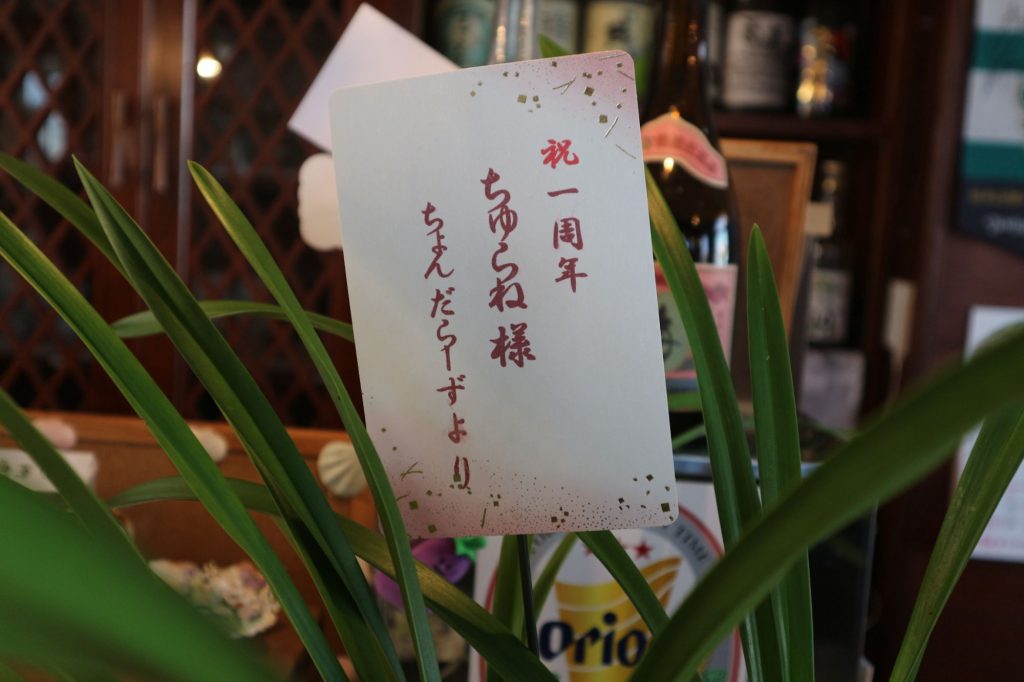 祝一周年
ちゅらね様
ちょんだらーずより
Orion